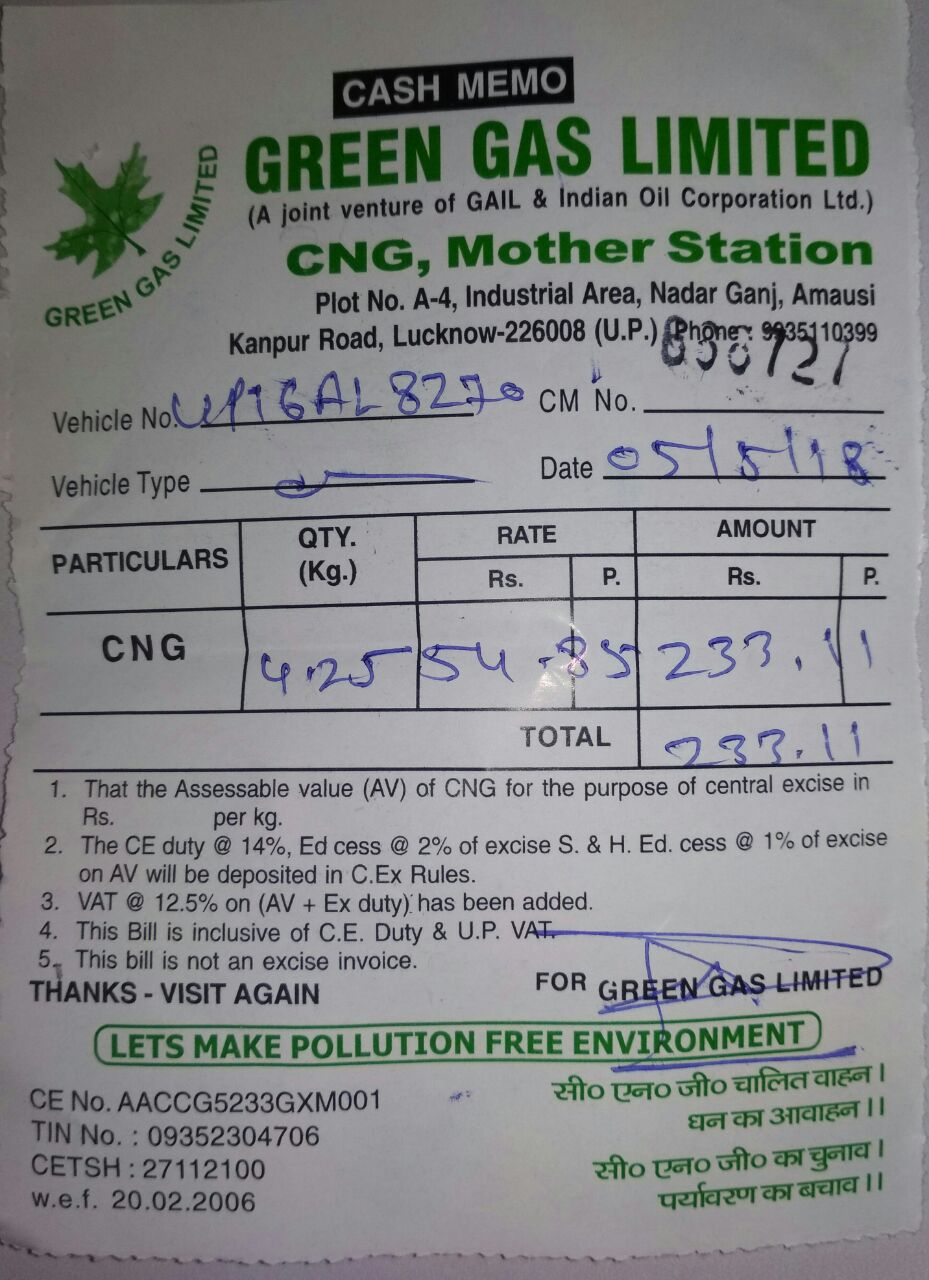 CASH MEMO
GREEN GAS LIMITED
GREEN GAS LIMITED
(A joint venture of GAIL & Indian Oil Corporation Ltd.)
CNG, Mother Station
Plot No. A-4, Industrial Area, Nadar Ganj, Amausi
Kanpur Road, Lucknow-226008 (U.P.) (Phone : 9935110399
Vehicle No. UP16AL8270 CM No.
Vehicle Type Date 05/5/18
PARTICULARS QTY. (Kg.) RATE AMOUNT
Rs. P. Rs. P.
CNG 4.25 54.85 233.11
TOTAL 233.11
1. That the Assessable value (AV) of CNG for the purpose of central excise in
Rs. per kg.
2. The CE duty @ 14%, Ed cess @ 2% of excise S. & H. Ed. cess @ 1% of excise
on AV will be deposited in C.Ex Rules.
3. VAT @ 12.5% on (AV + Ex duty) has been added.
4. This Bill is inclusive of C.E. Duty & U.P. VAT.
5. This bill is not an excise invoice.
THANKS - VISIT AGAIN FOR GREEN GAS LIMITED
LETS MAKE POLLUTION FREE ENVIRONMENT
CE No. AACCG5233GXM001
TIN No. : 09352304706
CETSH : 27112100
w.e.f. 20.02.2006
सी० एन० जी० चालित वाहन।
धन का आवाहन।।
सी० एन० जी० का चुनाव।
पर्यावरण का बचाव।।